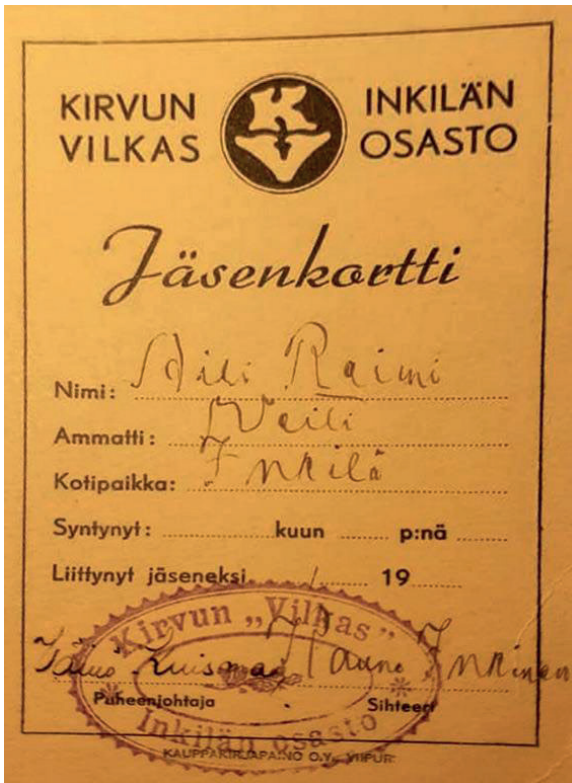 KIRVUN VILKAS
INKILÄN OSASTO
Jäsenkortti
Nimi: Aili Raimi
Ammatti:
Kotipaikka: Inkilä
Syntynyt: kuun p:nä
Liittynyt jäseneksi / 19
Kirvun „Vilkas”
Kuismao Hannu Inkinen
Puheenjohtaja Sihteeri
Inkilän osasto
KAUPPAKIRJAPAINO O.Y., VIIPURI